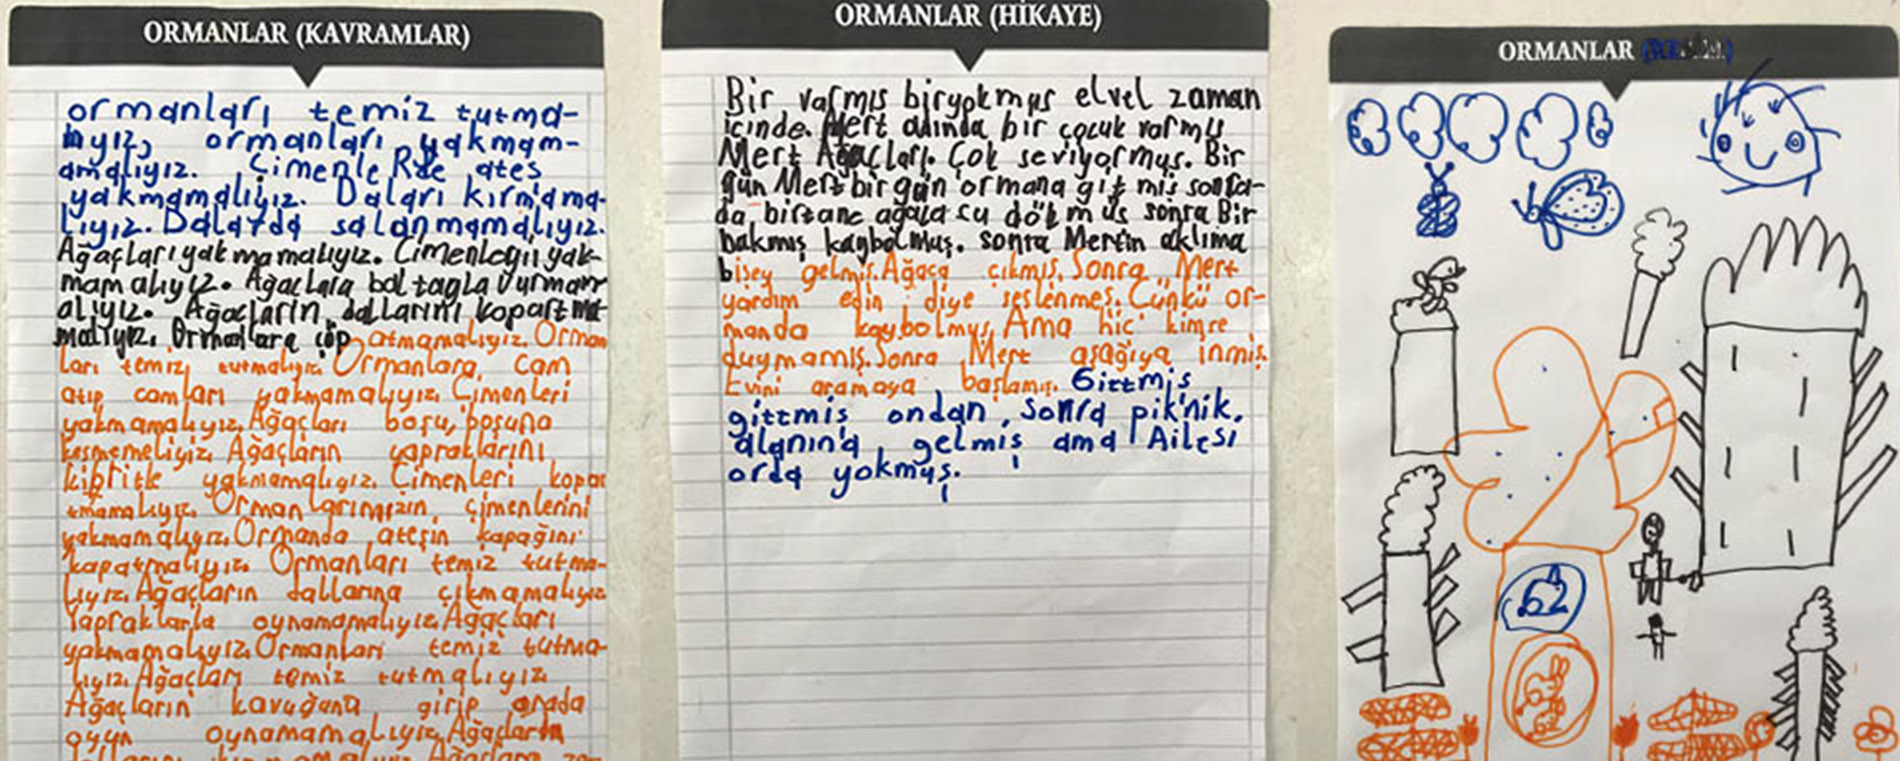 ORMANLAR (KAVRAMLAR)
ormanları temiz tutma-
lıyız, ormanları yakmam-
amalıyız. ÇimenleRde ateş
yakmamalıyız. Daları kırmama-
lıyız. Dalarda salanmamalıyız.
Ağaçları yakmamalıyız. Çimenleri yak-
mamalıyız. Ağaçlara baltayla vurmam
alıyız. Ağaçların dallarını kopartma
malıyız. Ormanlara çöp atmamalıyız. Orman
ları temiz tutmalıyız. Ormanlara cam
atıp camları yakmamalıyız. Çimenleri
yakmamalıyız. Ağaçları boşu boşuna
kesmemeliyiz. Ağaçların yapraklarını
kibritle yakmamalıyız. Çimenleri kopar
tmamalıyız. Ormanlarımızın çimenlerini
yakmamalıyız. Ormanda ateşin kapağını
kapatmalıyız. Ormanları temiz tutma-
lıyız. Ağaçların dallarına çıkmamalıyız
Yapraklarla oynamamalıyız. Ağaçları
yakmamalıyız. Ormanları temiz tutma-
lıyız. Ağaçları temiz tutmalıyız.
Ağaçların kavuğuna girip orada
oyun oynamamalıyız. Ağaçların
ORMANLAR (HİKAYE)
Bir varmış biryokmuş elvel zaman
içinde. Mert adında bir çocuk varmış
Mert Ağaçları. Çok seviyormuş. Bir
gün Mert bir gün ormana gitmiş sonra-
da birtane ağaca su dökmüş sonra Bir
bakmış kaybolmuş. sonra Mertin aklıma
bişey gelmiş. Ağaça çıkmış. Sonra Mert
yardım edin diye seslenmeş. Çünkü or-
manda kaybolmuş. Ama hiç kimse
duymamış. Sonra Mert aşağıya inmiş.
Evini aramaya başlamış. Gittmiş
gittmiş ondan, sonra pik'nik.
alanın'a gelmiş ama Ailesi
orda yokmuş.
ORMANLAR